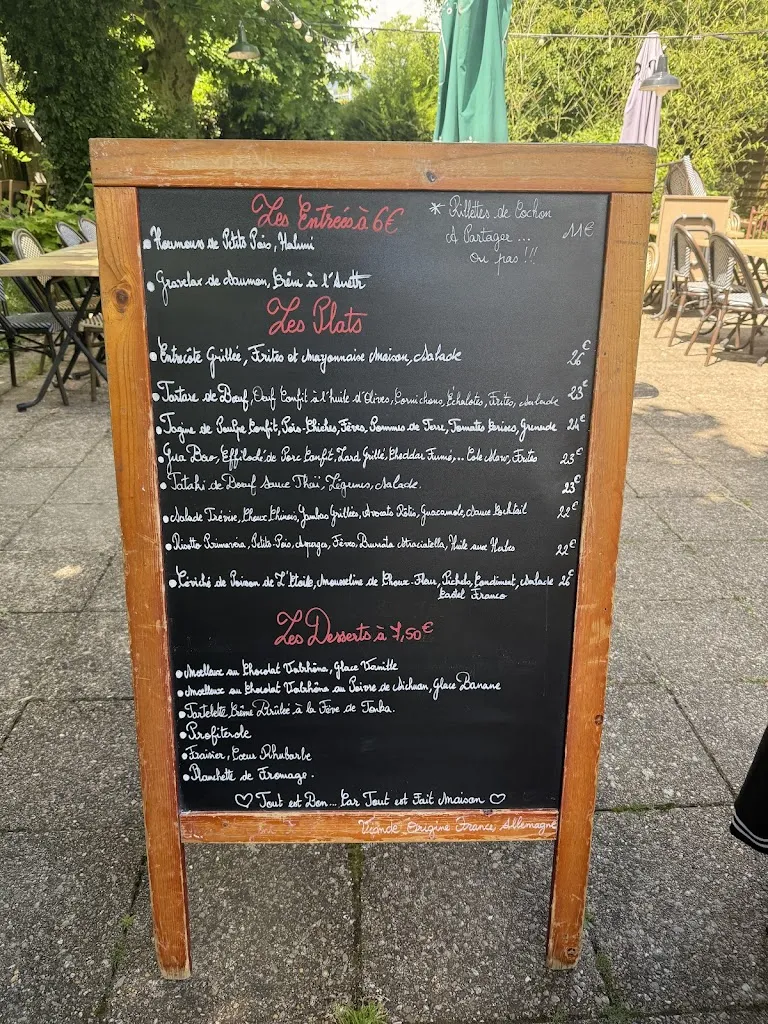 Les Entrées à 6€
* Rillettes de Cochon
A Partager... 11€
ou pas !!!
• Houmous de Petits Pois, Halumi
• Gravelax de Saumon, Crème à l'Aneth
Les Plats
• Entrecôte Grillée, Frites et Mayonnaise Maison, Salade 26€
• Tartare de Bœuf, Oeuf Confit à l'huile d'Olives, Cornichons, Échalotes, Frites, Salade 23€
• Tagine de Poulpe Confit, Pois-Chiches, Fèves, Pommes de Terre, Tomates Cerises, Grenade 24€
• Gua Bao, Effiloché de Porc Confit, Lard Grillé, Cheddar Fumé,... Cole Slaw, Frites 23€
• Tataki de Bœuf Sauce Thaï, Légumes, Salade. 23€
• Salade Trévise, Choux Chinois, Gambas Grillées, Avocats Rôtis, Guacamole, Sauce Cocktail 22€
• Risotto Primavera, Petits-Pois, Asperges, Fèves, Burrata Straciatella, Huile aux Herbes 22€
• Céviché de Poisson de L'Etoile, Mousseline de Choux-Fleur, Pickels, Condiment, Salade 26€
Castel Franco
Les Desserts à 7,50€
• Moelleux au Chocolat Valrhôna, Glace Vanille
• Moelleux au Chocolat Valrhôna au Poivre de Sichuan, Glace Banane
• Tartelette Crème Brûlée à la Fève de Tonka.
• Profiterole
• Fraisier, Cœur Rhubarbe
• Planchette de Fromage.
♡ Tout est Bon... Car Tout est Fait Maison ♡
Viande Origine France, Allemagne